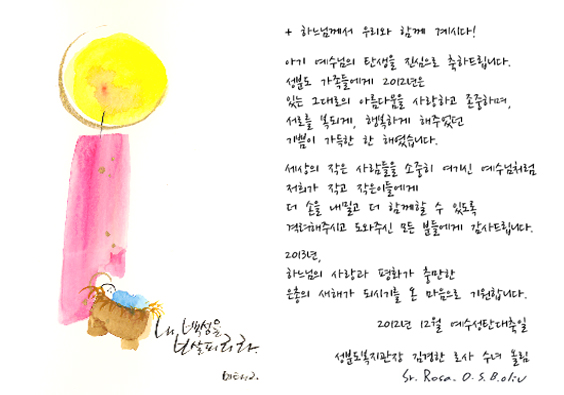 + 하느님께서 우리와 함께 계시다!
아기 예수님의 탄생을 진심으로 축하드립니다.
성분도 가족들에게 2012년은
있는 그대로의 아름다움을 사랑하고 존중하며,
서로를 복되게, 행복하게 해주었던
기쁨이 가득한 한 해였습니다.
세상의 작은 사람들을 소중히 여기신 예수님처럼
저희가 작고 작은이들에게
더 손을 내밀고 더 함께할 수 있도록
격려해주시고 도와주신 모든 분들에게 감사드립니다.
2013년,
하느님의 사랑과 평화가 충만한
은총의 새해가 되시기를 온 마음으로 기원합니다.
2012년 12월 예수성탄대축일
성분도복지관장 김경란 로사 수녀 올림
Sr. Rosa. O.S.B.oliv
내 백성을
보살피리라.